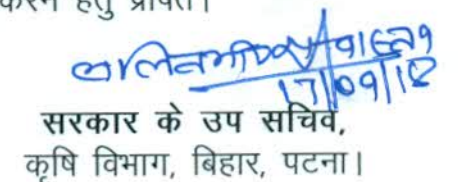 करने हेतु प्रेषित।
17/09/18
सरकार के उप सचिव,
कृषि विभाग, बिहार, पटना।